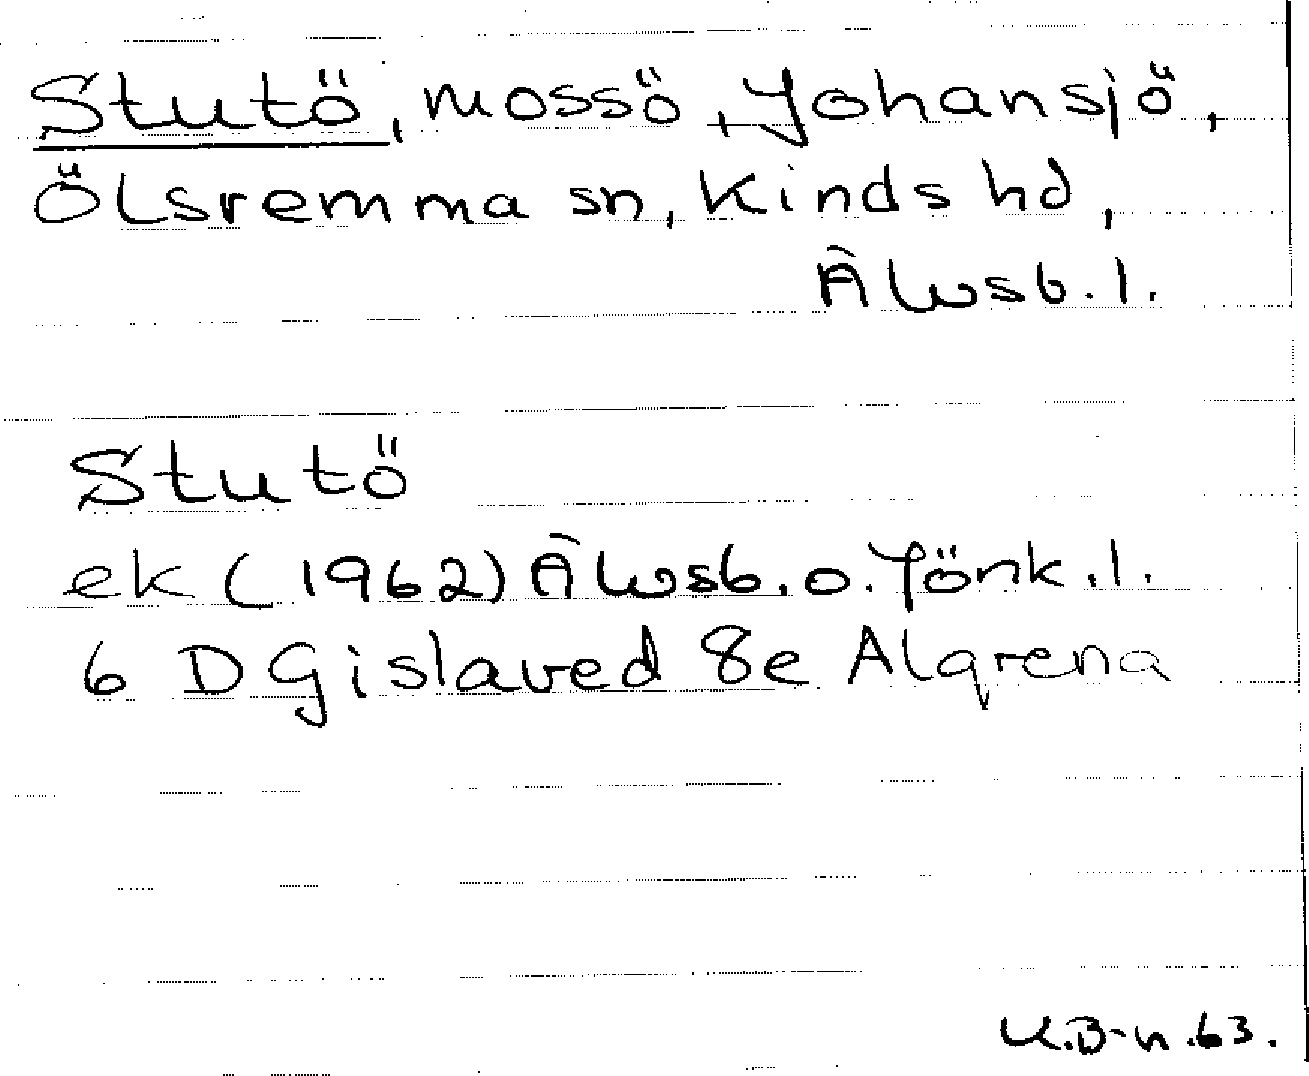 Stutö, mossö, Johansjö,
Ölsremma sn, Kinds hd,
Älvsb. l.
Stutö
ek (1962) Älvsb. o. Jönk. l.
6 D Gislaved 8e Algrena
K.B-n.63.